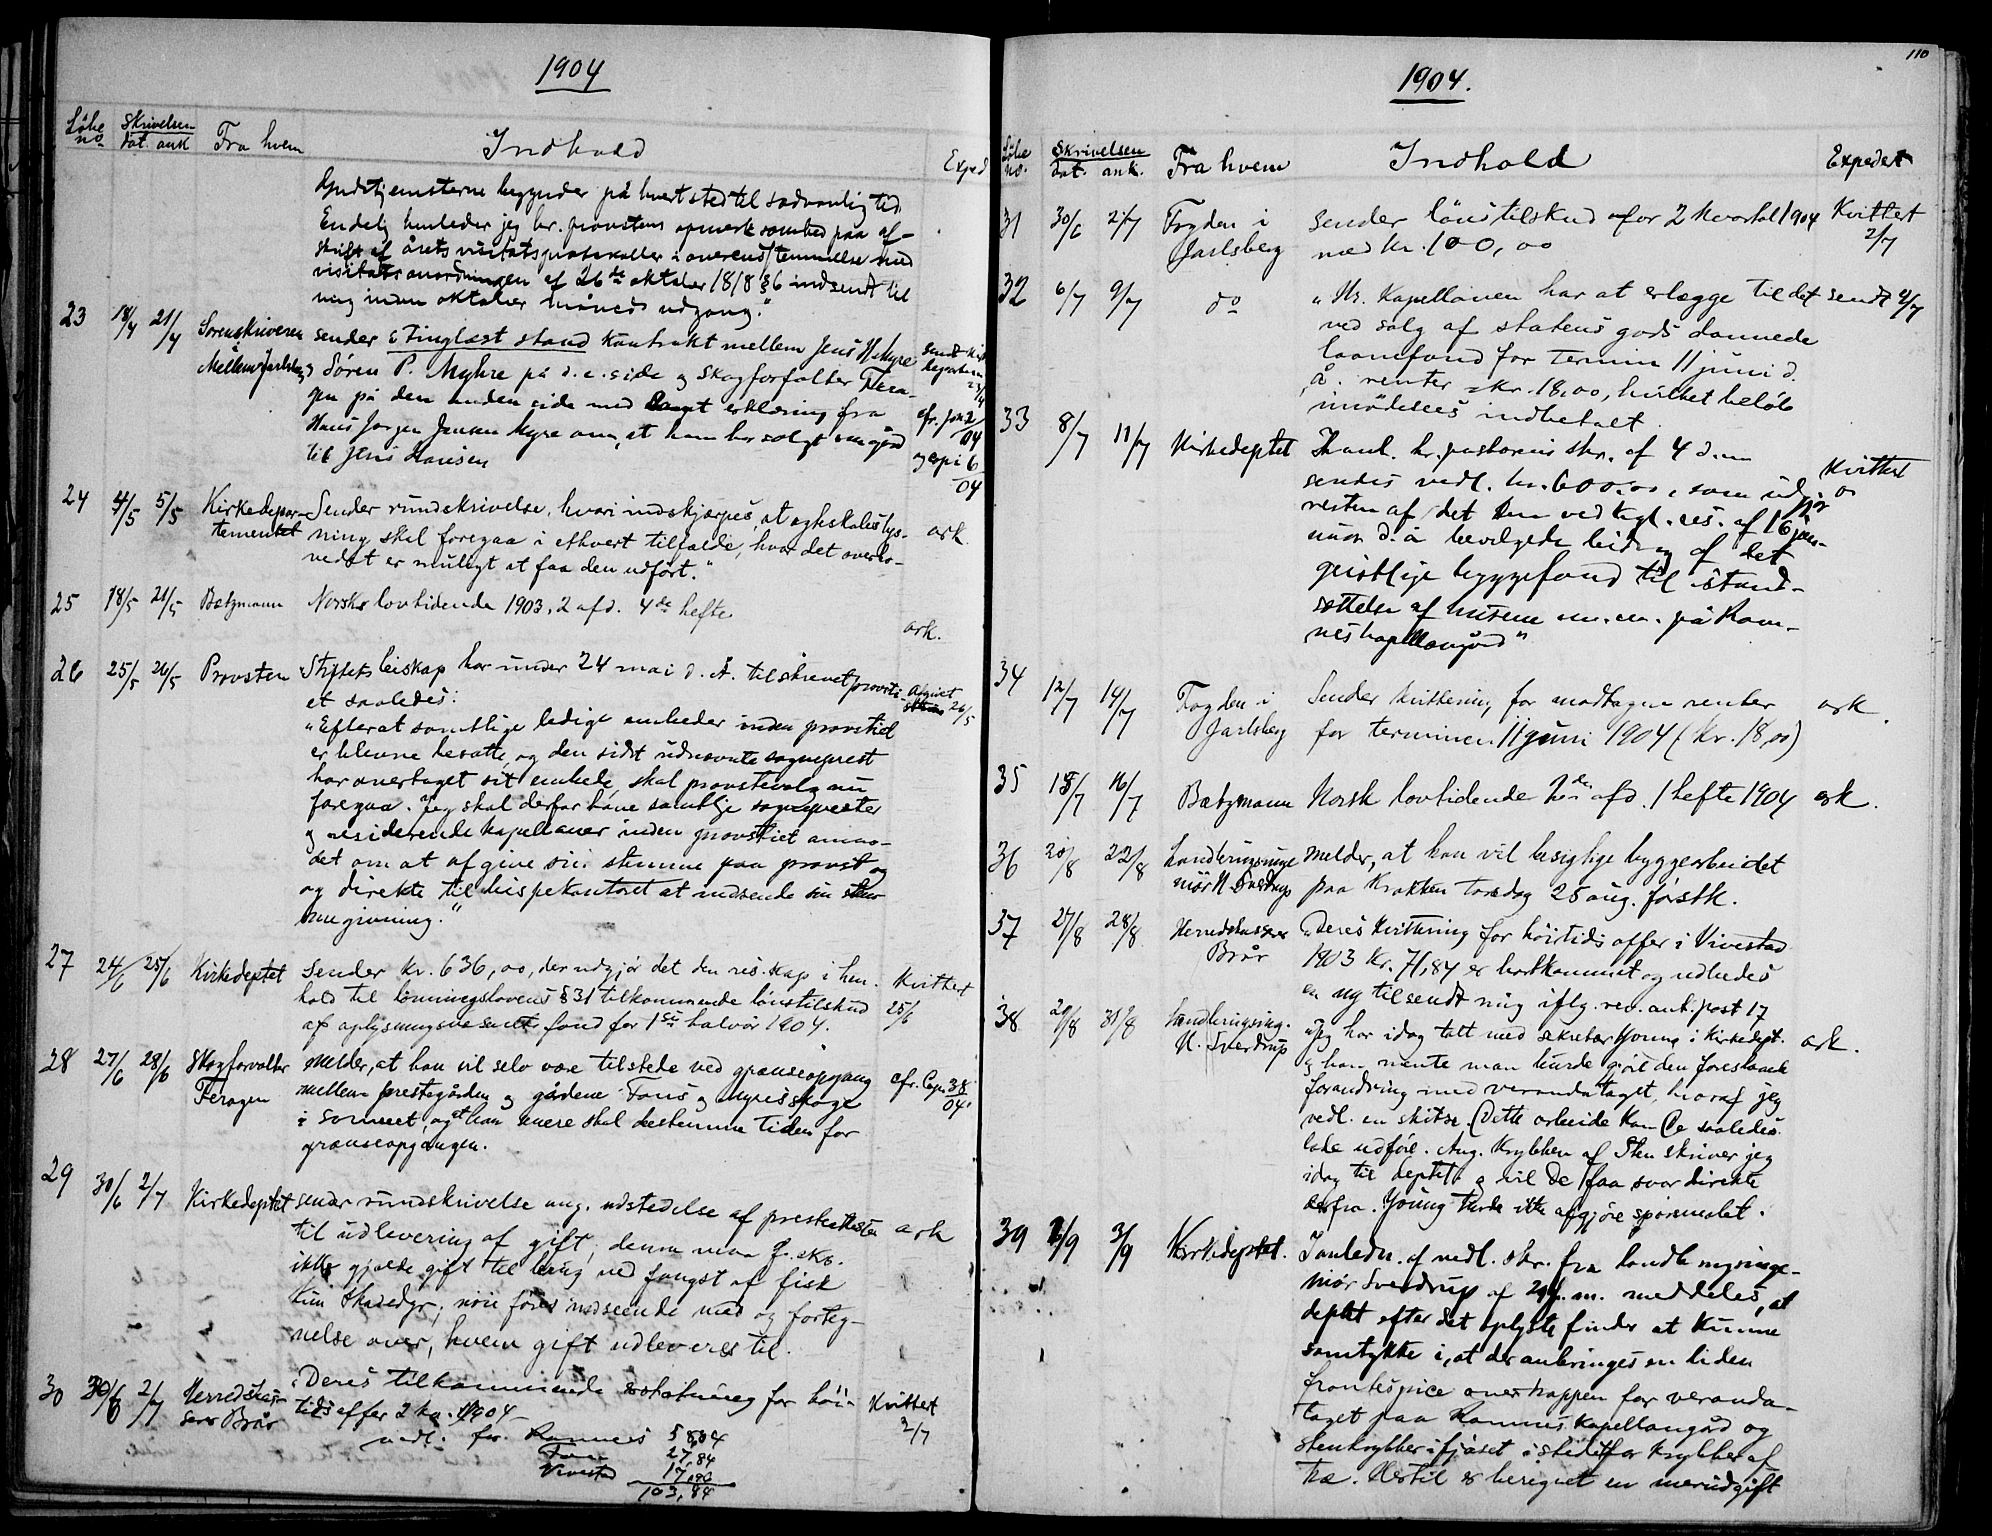 1904
Löbe no
Skrivelsen
dat. ank
Fra hvem
Indhold
Exped
Gudstjenesterne begynder på hvert sted til sædvanlig tid.
Endelig henleder jeg hr. provstens opmerksomhed paa af-
skrift af årets visitatsprotokoller i overensstemmelse med
visitatsanordningen af 26de oktober 1818 § 6 indsendt til
mig inden oktober måneds udgang."
23 18/4 21/4 Sorenskriveren sender 1 tinglæst stand kontrakt mellem Jens H Myre sendt
Mellem Jarlsberg og Søren P. Myhre på d. e. side og Skogforvalter Fera-
gen på den anden side med erklæring fra cfr. jon 2/04
Hans Jørgen Jensen Myre om, at ham har solgt sin gård
til Jens Hansen og 6/04
24 4/5 5/5 Kirkedepar- Sender rundskrivelse, hvori indskjærpes, at egteskabslys-
tementet ning skal foregaa i ethvert tilfælde, hvor det overho- ark.
vedet er muligt at faa den udført."
25 18/5 21/5 Bætzmann Norsk lovtidende 1903, 2 afd. 4de hefte
ark.
26 25/5 26/5 Provsten Stiftets biskop har under 24 mai d. A. tilskrevet provsti- Afgivet
et saaledes: stemme 26/5
"Efterat samtlige ledige embeder inden provstiet
er blevne besatte, og den sidst udnævnte sogneprest
har overtaget sit embede, skal provstevalg nu
foregaa. Jeg skal derfor have samtlige sogneprester
og residerende kapellaner inden provstiet anmo-
det om at afgive sin stemme paa provst og
og direkte til bispekontoret at indsende sin stem
megivning."
27 24/6 25/6 Kirkedeptet sender kr. 636,00, der udgjør det den res. kap i hen- Kvittert
hold til lønningslovens § 31 tilkommende lønstilskud 25/6
af oplysningsvesenets fond for 1ste halvår 1904.
28 27/6 28/6 Skogforvalter melder, at han vil selv være tilstede ved grænseopgang cfr. Cop. 38/04.
Feragen mellem prestegården og gårdene Fons og Myres skoge
i sommer, og at han senere skal bestemme tiden for
grænseopgangen.
29 30/6 2/7 Kirkedeptet sender rundskrivelse ang. udstedelse af presteattester ark
til udlevering af gift, denne maa f. eks.
ikke gjælde gift til brug ved fangst af fisk
kun skadedyr; nøie føres indseende med og forteg-
nelse over, hvem gift udleveres til.
30 30/6 2/7 Herredskas- "Deres tilkommende erstatning for høi- Kvittert
serer Brår tidsoffer 2 kv. 1904 2/7
vedl. for Ramnes 58,04
Fon 27,84
Vivestad 17,96
103,84
110
1904.
Löbe no.
Skrivelsen
dat. ank.
Fra hvem
Indhold
Expedert
31 30/6 2/7 Fogden i sender lönstilskud for 2 kvartal 1904 Kvittert
Jarlsberg med kr. 100,00 2/7
32 6/7 9/7 do "Hr. Kapellanen har at erlægge til det sendt 9/7
ved salg af statens gods dannede
laanefond for termin 11 juni d.
å. renter = kr. 18,00, hvilket beløb
imødesees indbetalt.
33 8/7 11/7 Kirkedeptet I hanl. hr. pastorens skr. af 4 d. m
sendes vedl. kr. 600.00, som ud- Kvittert
gjør
resten af det Dem ved kgl. res. af 16 jan-
uar d. å bevilgede bidrag af det
geistlige byggefond til istand-
sættelse af husene m. m. på Ram-
nes kapellangård"
34 12/7 14/7 Fogden i Sender kvittering for modtagne renter ark.
Jarlsberg for terminen 11 juni 1904 (kr. 18,00)
35 15/7 16/7 Bætzmann Norsk lovtidende 2den afd. 1 hefte 1904 ark.
36 20/8 22/8 Landbrugsinge melder, at han vil besigtige byggearbeidet
niör N. Sverdrup paa Krakken torsdag 25 aug. förstk.
37 27/8 28/8 Herredskasserer "Deres kvittering for höitidsoffer i Vivestad
Brår 1903 kr. 71,84 er bortkommet og udbedes
en ny tilsendt mig iflg. rev. ant. post 17
38 29/8 31/8 Landbrugsing. "Jeg har idag talt med sekretær Young i Kirkedept. ark.
N. Sverdrup og han mente man burde gjöre den foreslaaede
forandring med verandataget, hvoraf jeg
vedl. en skitse. (Dette arbeide kan De saaledes
lade udföre. Ang. krybben af Sten skriver jeg
idag til deptet og vil De faa svar direkte
derfra. Young turde ikke afgjöre spörsmaalet.
39 1/9 3/9 Kirkedeptet. I anledn. af vedl. skr. fra landbrugsinge-
niör Sverdrup af 29 f. m. meddeles, at
deptet efter det oplyste finder at kunne
samtykke i, at der anbringes en liden
frontespice over trappen for veranda-
taget paa Ramnes kapellangård og
stenkrybber i fjöset istedetfor krybber af
træ. Hertil er beregnet en merudgift